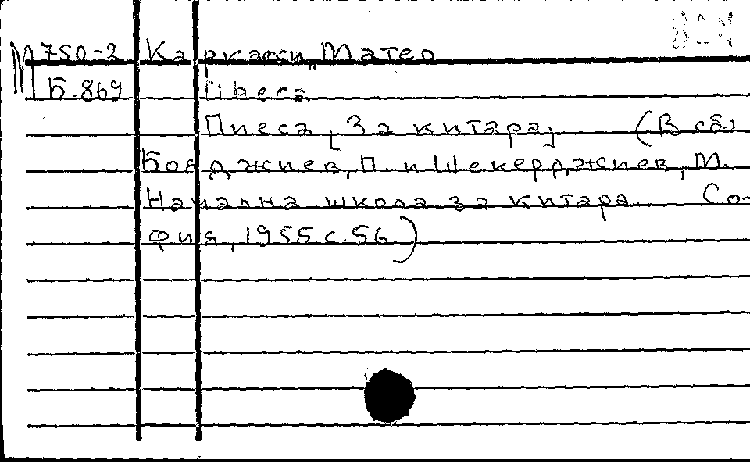 М 750-2 Каркаси, Матео
Б.869 Пиеса
Пиеса [за китара] (В сб.
Бояджиев, П. и Шекерджиев, М.
Начална школа за китара. Со-
фия, 1955 с.56)